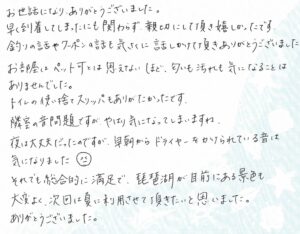 お世話になり、ありがとうございました。
早く到着してしまったにも関わらず、親切にして頂き嬉しかったです。
釣りの話やクーポンの話も気さくに話しかけて頂きありがとうございました
お部屋はペット可とは思えないほど、匂いも汚れも気になることは
ありませんでした。
トイレの使い捨てスリッパもありがたかったです。
隣室の音問題ですが、やはり気になってしまいますね。
夜は大丈夫だったのですが、早朝からドライヤーをかけられている音は
気になりました
それでも総合的に満足で、琵琶湖が目前にある景色も
大変よく、次回は夏に利用させて頂きたいと思いました。
ありがとうございました。